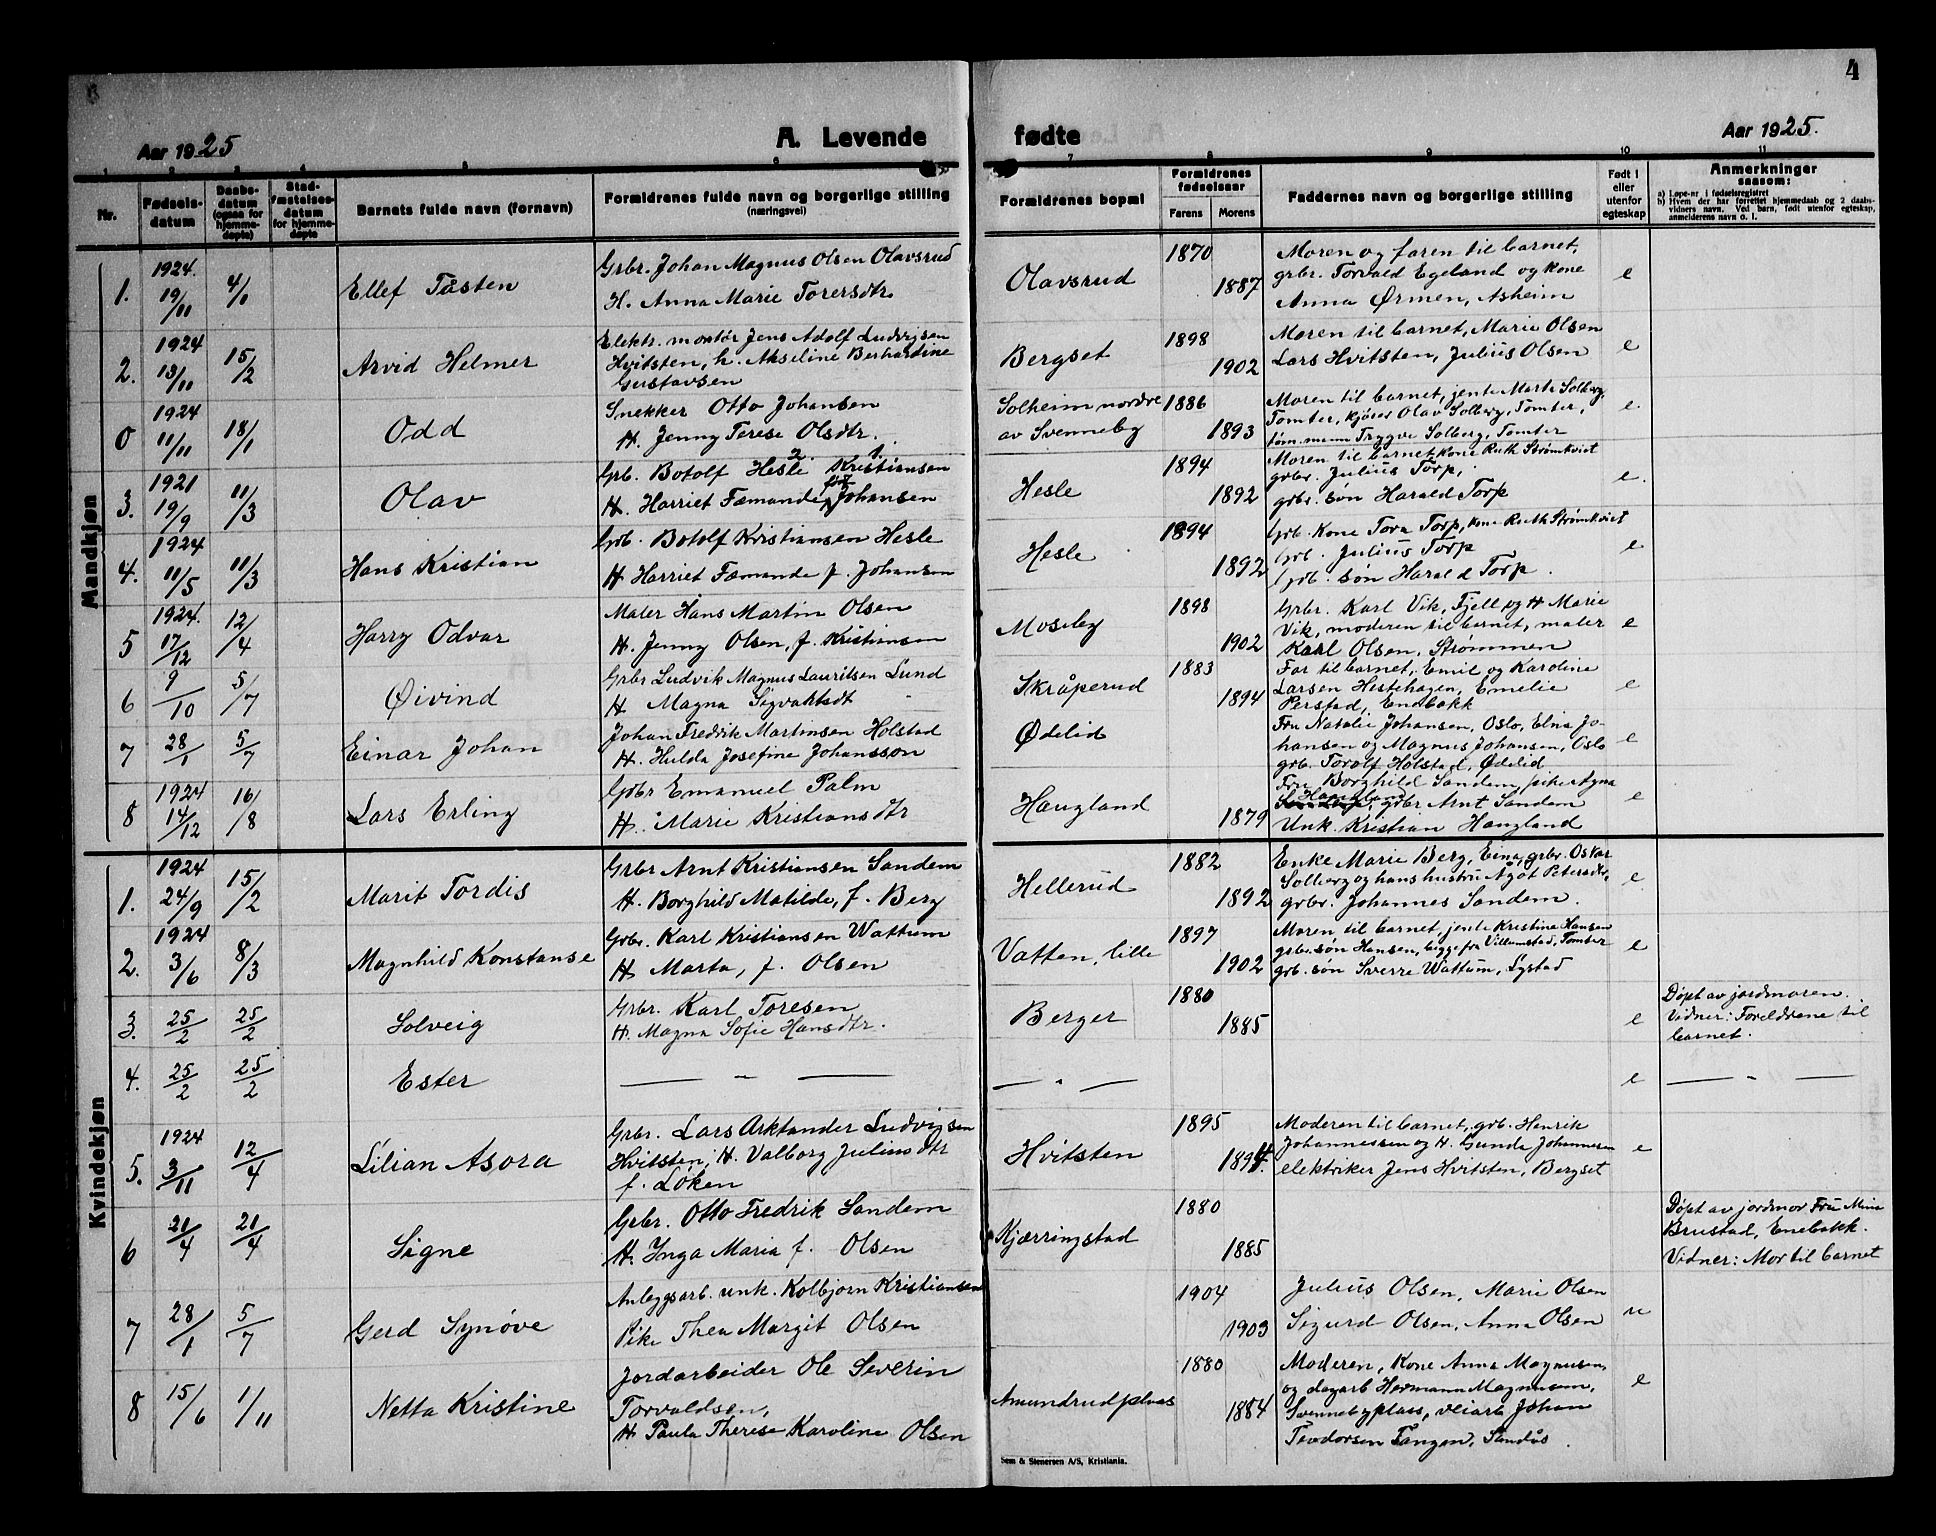 4
Aar 1925
A. Levende fødte
Aar 1925.
1 2 3 4 5 6 7 8 9 10 11
Nr.
Fødsels-
datum
Daabs-
datum
(ogsaa for
hjemme-
døpte)
Stad-
fæstelses-
datum
for hjemme-
døpte
Barnets fulde navn (fornavn)
Forældrenes fulde navn og borgerlige stilling
(næringsvei)
Forældrenes bopæl
Forældrenes
fødselsaar
Farens Morens
Faddernes navn og borgerlige stilling
Født i
eller
utenfor
egteskap
Anmerkninger
saasom:
a) Løpe-nr. i fødselsregistret
b) Hvem der har forrettet hjemmedaab og 2 daabs-
vidners navn. Ved barn, født utenfor egteskap,
anmelderens navn o. l.
Mandkjøn
1. 1924. 19/11 4/1 Ellef Tåsten
Grbr. Johan Magnus Olsen Olavsrud
H. Anna Marie Torersdtr.
Olavsrud 1870 1887
Moren og faren til barnet,
grbr. Torvald Egeland og kone
Anna Ørmen, Asheim
e
2. 1924 13/11 15/2 Arvid Helmer
Elektr. montør Jens Adolf Ludvigsen
Hvitsten, h. Akseline Berhardine
Gustavsen
Bergset 1898 1902
Moren til barnet, Marie Olsen
Lars Hvitsten, Julius Olsen
e
0 1924 11/11 18/1 Odd
Snekker Otto Johansen
H. Jenny Terese Olsdtr.
Solheim nordre
av Svenneby
1886 1893
Moren til barnet, jente Marta Solberg,
Tomter, kjører Olav Solberg, Tomter,
tøm.mann Trygve Solberg, Tomter
e.
3. 1921 19/9 11/3 Olav
Grb. Botolf Hesle 2. Kristiansen 1.
H. Harriet Fæmande født Johansen
Hesle 1894 1892
Moren til barnet, Kone Ruth Strømkvist
grbr. Julius Torp,
grbr. søn Harald Torp
e.
4. 1924 11/5 11/3 Hans Kristian
Grb. Botolf Kristiansen Hesle
H Harriet Fæmande f. Johansen
Hesle 1894 1892
Grb. Kone Tora Torp, kone Ruth Strømkvist
Grb. Julius Torp
Grb. søn Harald Torp.
e
5 1924. 17/12 12/4 Harry Odvar
Maler Hans Martin Olsen
H. Jenny Olsen, f. Kristiansen
Moseby 1898 1902
Grbr. Karl Vik, Fjell og H Marie
Vik, moderen til barnet, maler
Karl Olsen, Strømmen
e
6 9/10 5/7 Øivind
Grbr Ludvik Magnus Lauritsen Lund
H Magna Sigvaldtdt
Skråperud 1883 1894
Far til barnet, Emil og Karoline
Larsen Hestehagen, Emelie
Perstad, Enebakk
e
7 28/1 5/7 Einar Johan
Johan Fredrik Martinsen Holstad
H. Hulda Josefine Johansson
Ødelid
Fru Natalie Johansen, Oslo, Elna Jo-
hansen og Magnus Johansen, Oslo
grb. Torolf Holstad, Ødelid
e
8 1924 14/12 16/8 Lars Erling
Grbr Emanuel Palm
H. Marie Kristiansdtr
Haugland 1879
Fru Borghild Sandem, pike Agna
Haugland, grbr Arnt Sandem
Unk. Kristian Haugland
e
Kvindekjøn
1. 1924 24/9 15/2 Marit Tordis
Grbr Arnt Kristiansen Sandem
H. Borghild Matilde, f. Berg
Hellerud 1882 1892
Enke Marie Berg, Eina, grbr. Oskar
Solberg og hans hustru Agåt Petersdtr,
grbr. Johannes Sandem.
e
2. 1924 3/6 8/3 Magnhild Konstanse
Grbr. Karl Kristiansen Wattum
H Marta, f. Olsen
Vatten, lille 1897 1902
Moren til barnet, jente Kristine Hansen
grbr. søn Hansen, begge fra Villumstad, Tomter
grb. søn Sverre Wattum, Lystad
e
3. 25/2 25/2 Solveig
Grbr. Karl Toresen
H. Magna Sofie Hansdtr.
Berger 1880 1885
e
Døpt av jordmoren.
Vidner: Foreldrene til
barnet.
4. 25/2 25/2 Ester
— " —
— " —
e
— " —
5. 1924 3/11 12/4 Lilian Asora
Grbr. Lars Arktander Ludvigsen
Hvitsten, H. Valborg Juliusdtr
f. Løken
Hvitsten 1895 1894.
Moderen til barnet, grb. Henrik
Johannessen og H. Gunda Johannesen
elektriker Jens Hvitsten, Bergset
e
6 21/4 21/4 Signe
Grbr. Otto Fredrik Sandem
H. Inga Maria f. Olsen
Kjærringstad 1880 1885
Døpt av jordmor Fru Mina
Brustad, Enebakk.
Vidner: Mor til barnet
7 28/1 5/7 Gerd Synøve
Anleggsarb. unk. Kolbjørn Kristiansen
Pike Thea Margit Olsen
1904 1903
Julius Olsen, Marie Olsen
Sigurd Olsen, Anna Olsen
u
8 15/6 1/11 Netta Kristine
Jordarbeider Ole Severin
Torvaldsen,
H Paula Therese Karoline Olsen
Amundrudplass 1880 1884
Moderen, Kone Anna Magnusen,
og dagarb Hermann Magnusen,
Svennebyplass, veiarb Johan
Teodorsen Tangen, Sandås.
e
Sem & Stenersen A/S, Kristiania.